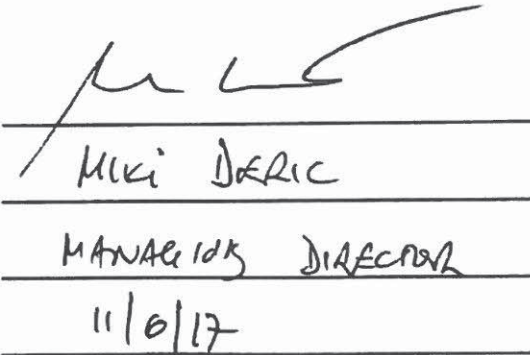 MIKI DERIC
MANAGING DIRECTOR
11/6/17